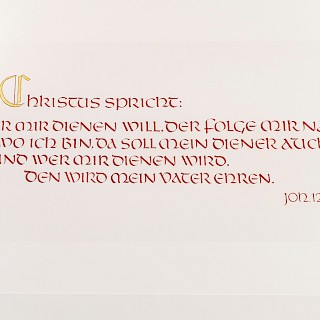 Christus spricht:
R MIR DIENEN WILL, DER FOLGE MIR NA
WO ICH BIN, DA SOLL MEIN DIENER AUCH
UND WER MIR DIENEN WIRD,
DEN WIRD MEIN VATER EHREN.
JOH. 12